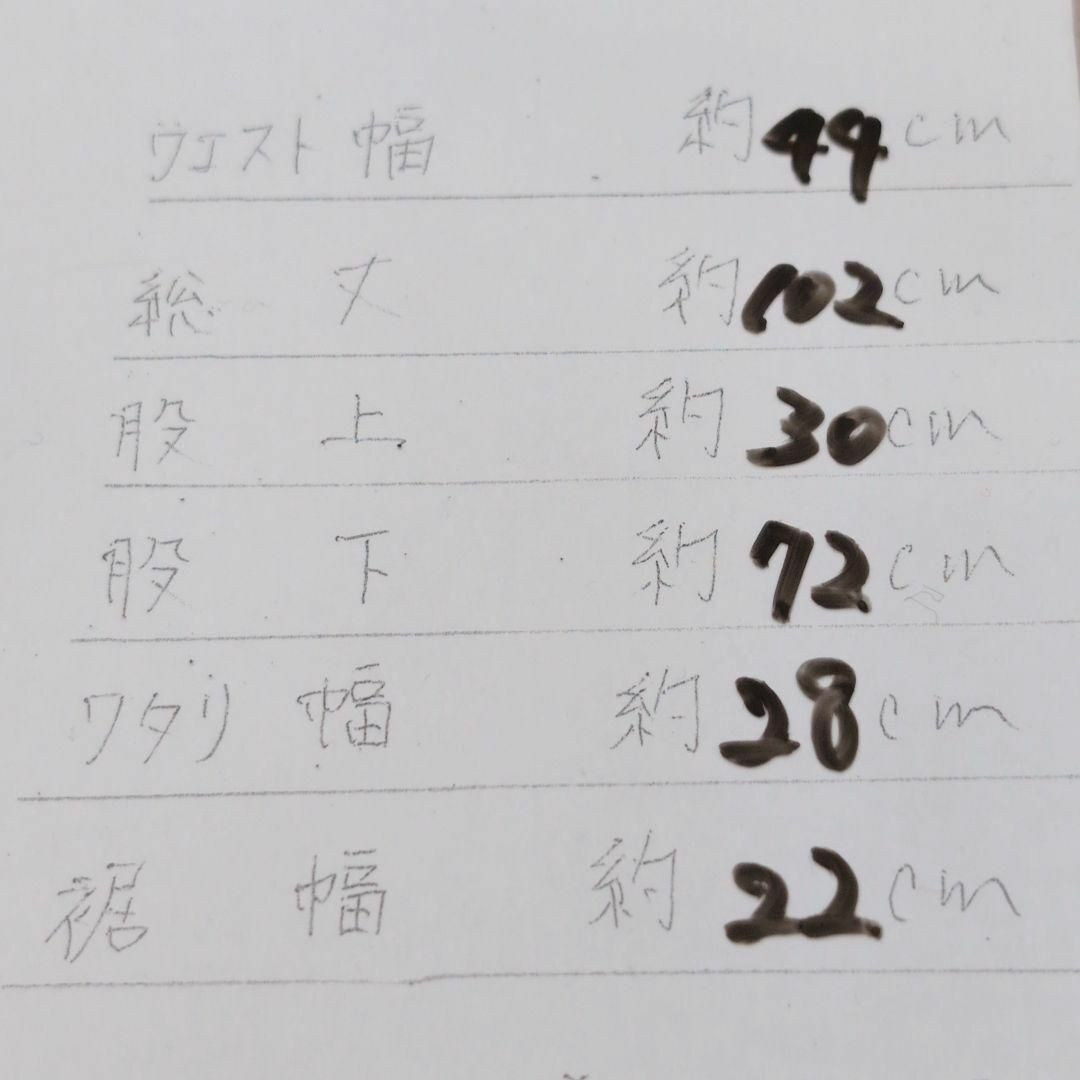 ウエスト幅 約44cm
総丈 約102cm
股上 約30cm
股下 約72cm
ワタリ幅 約28cm
裾幅 約22cm